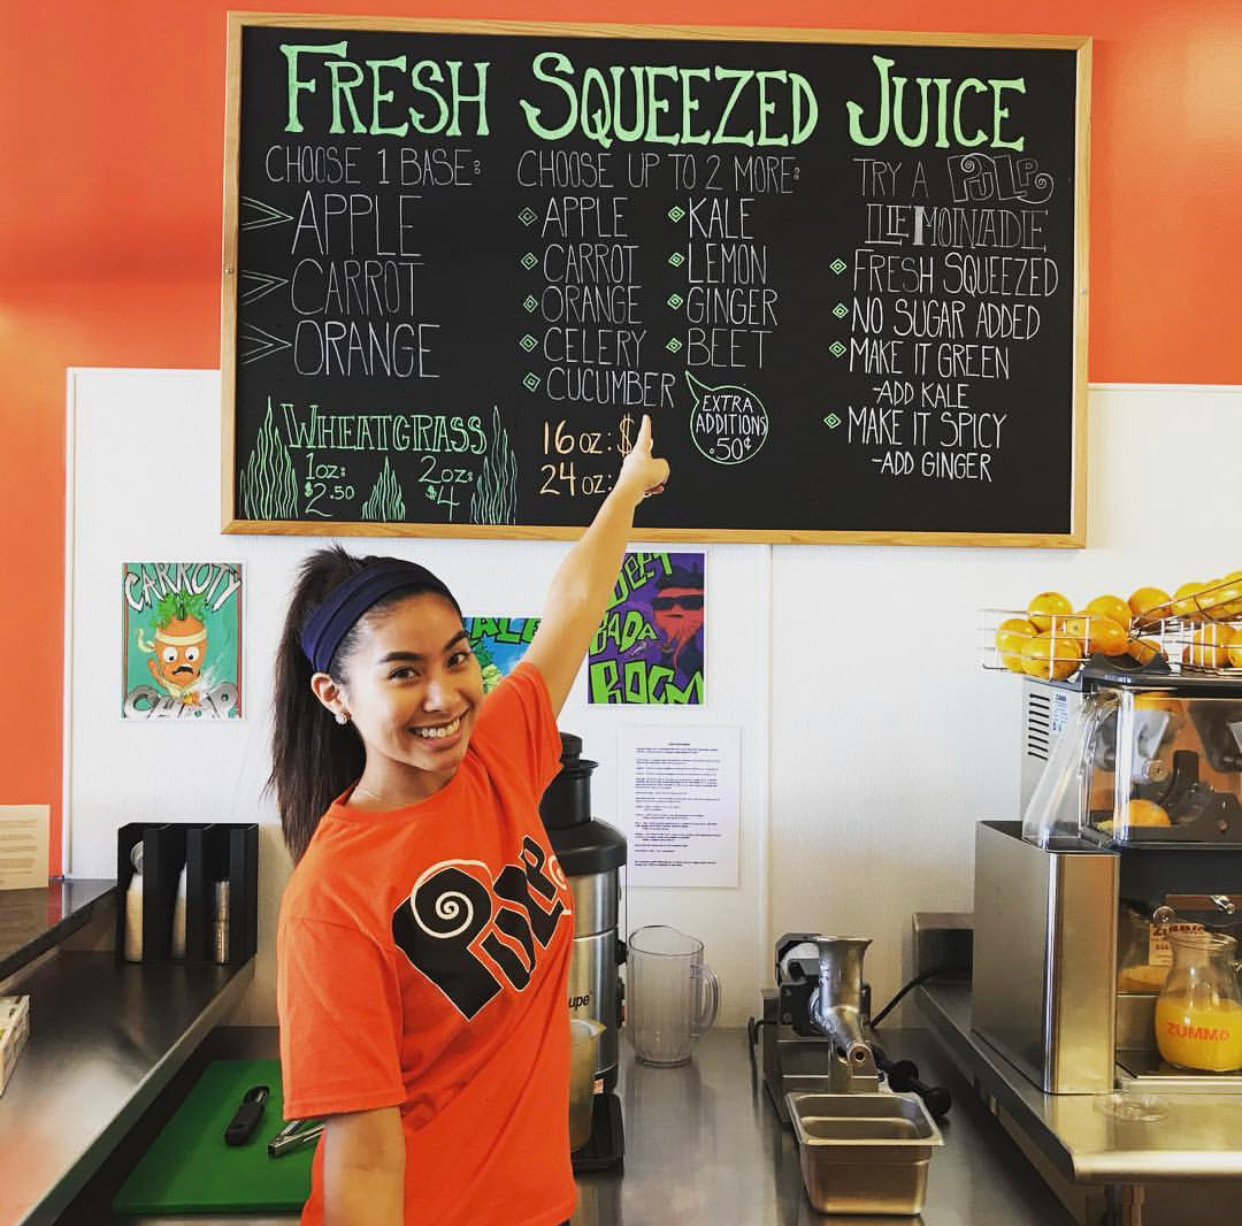 FRESH SQUEEZED JUICE
CHOOSE 1 BASE:
APPLE
CARROT
ORANGE
WHEATGRASS
1oz:
$2.50
2oz:
$4
CHOOSE UP TO 2 MORE:
APPLE
CARROT
ORANGE
CELERY
CUCUMBER
KALE
LEMON
GINGER
BEET
EXTRA
ADDITIONS
.50¢
16oz: $
24oz:
TRY A PULP
LEMONADE
FRESH SQUEEZED
NO SUGAR ADDED
MAKE IT GREEN
-ADD KALE
MAKE IT SPICY
-ADD GINGER
CARROTY
CHOP
BADA
BOOM
PULP
ZUMMO